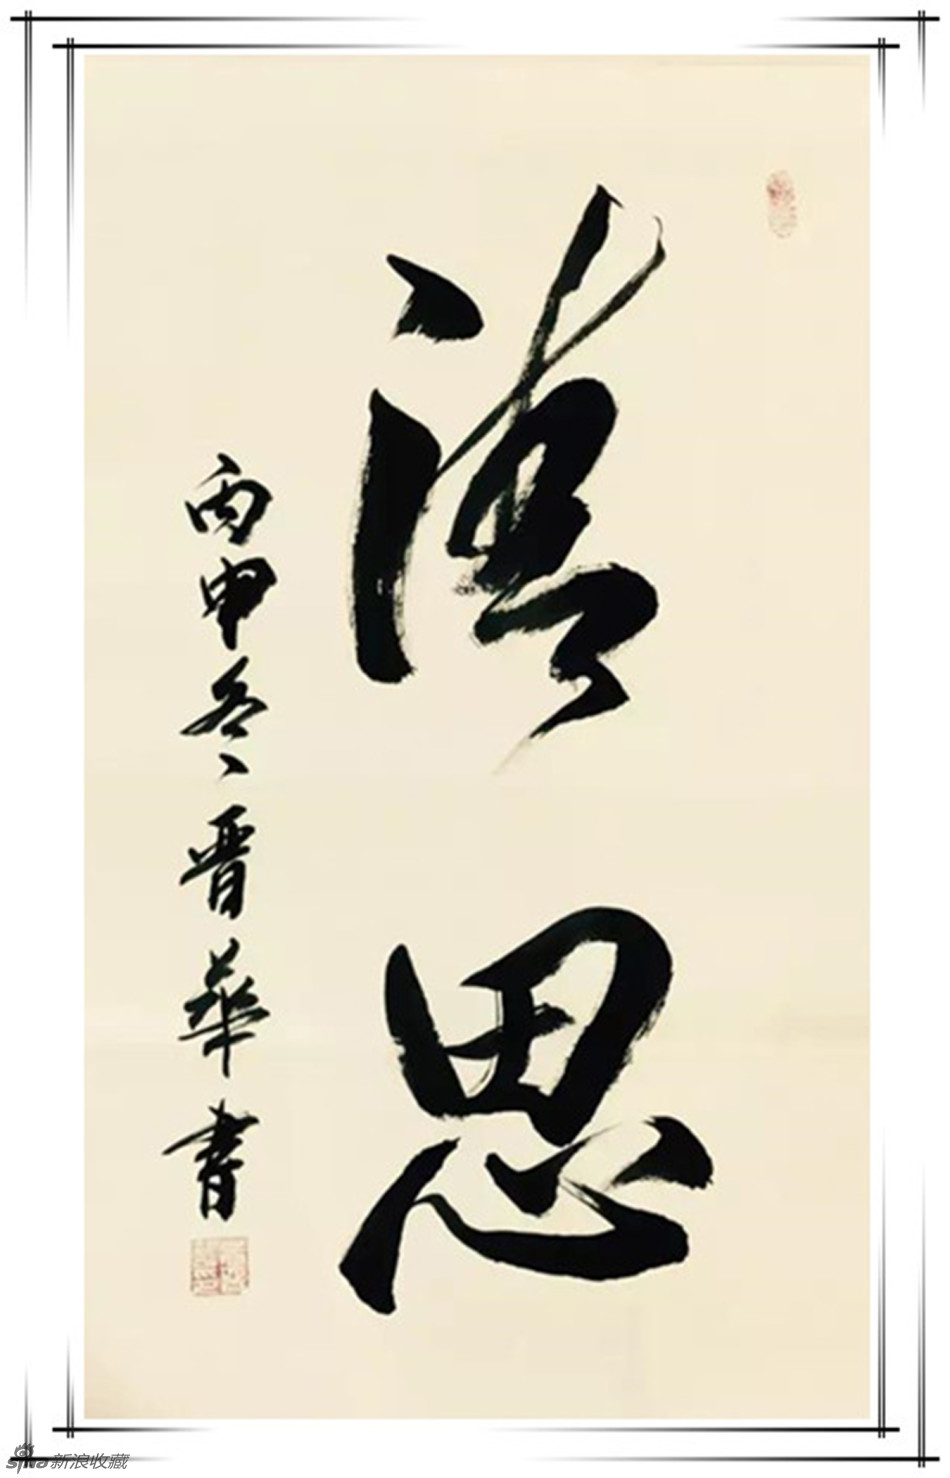 思
丙申冬、晋華書
sina新浪收藏